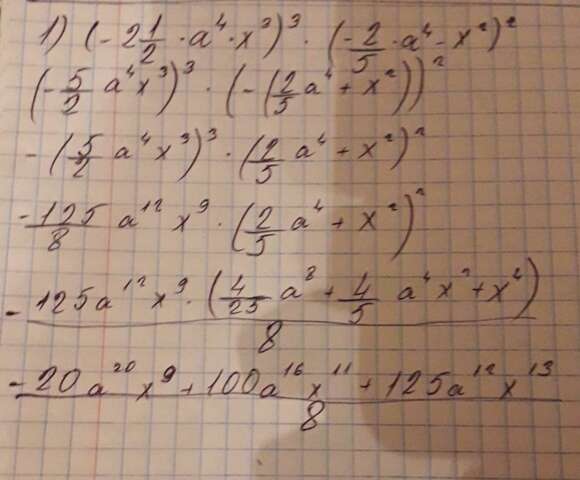 1) (-2 1/2 · a⁴ · x³)³ · (-2/5 · a⁴ - x²)²
(-5/2 a⁴x³)³ · (-(2/5 a⁴ + x²))²
-(5/2 a⁴ x³)³ · (2/5 a⁴ + x²)²
-125/8 a¹² x⁹ · (2/5 a⁴ + x²)²
- 125a¹² x⁹ · (4/25 a⁸ + 4/5 a⁴x² + x⁴) / 8
- 20a²⁰ x⁹ + 100a¹⁶ x¹¹ + 125a¹² x¹³ / 8